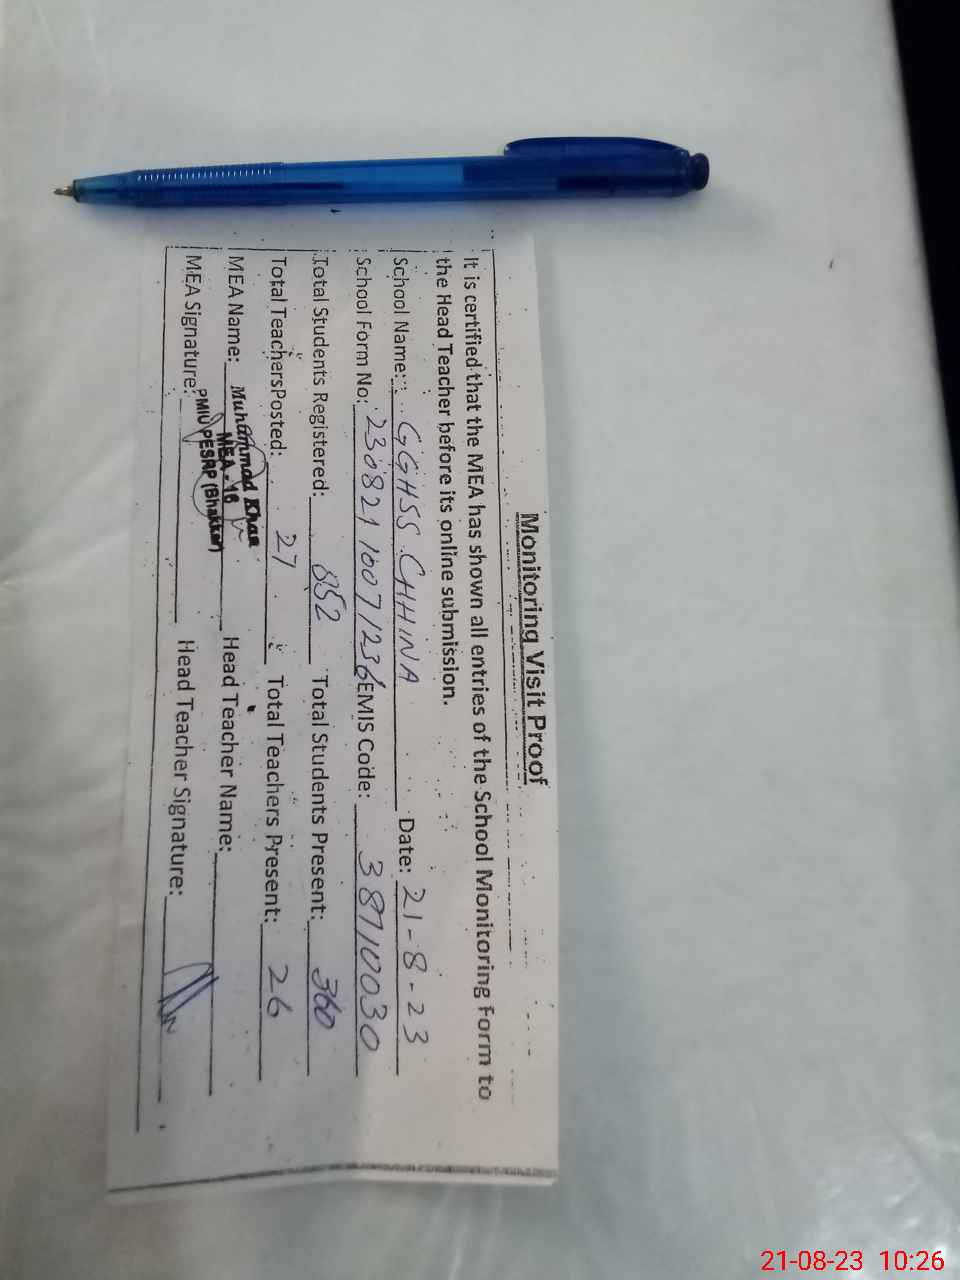 Monitoring Visit Proof
It is certified that the MEA has shown all entries of the School Monitoring Form to
the Head Teacher before its online submission.
School Name: GGHSS CHHINA Date: 21-8-23
School Form No: 230821 1007 1236 EMIS Code: 38710030
Total Students Registered: 852 Total Students Present: 360
Total Teachers Posted: 27 Total Teachers Present: 26
MEA Name: Muhammad Khan Head Teacher Name:
MEA - 16
PMIU PESRP (Bhakkar)
MEA Signature: Head Teacher Signature:
21-08-23 10:26